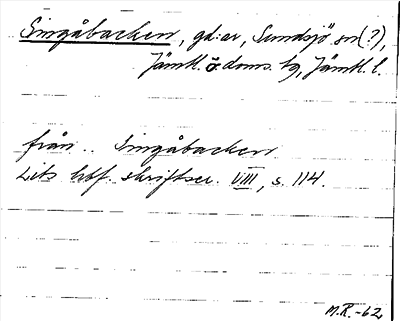 Singåbacken, gd:ar, Sundsjö sn(?),
Jämtl. ö. doms. tg, Jämtl. l.
från .. Singåbacken
Lits hbf. skriftser. VIII, s. 114.
M.R.-62